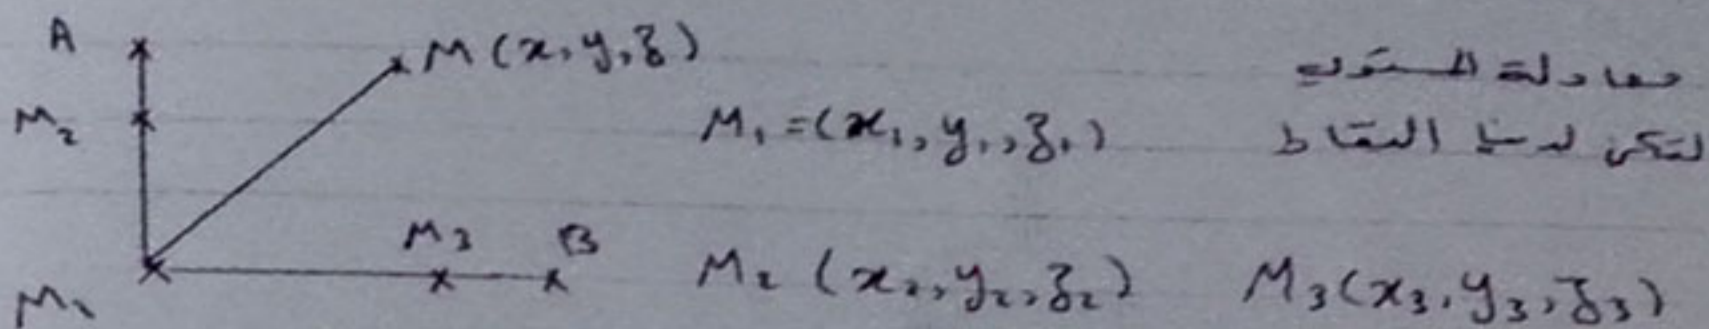 معادلة المستوي
A M(x, y, z)
M₂ M₁ = (x₁, y₁, z₁) لتكن لدينا النقاط
M₃ B
M₁ M₂ (x₂, y₂, z₂) M₃(x₃, y₃, z₃)